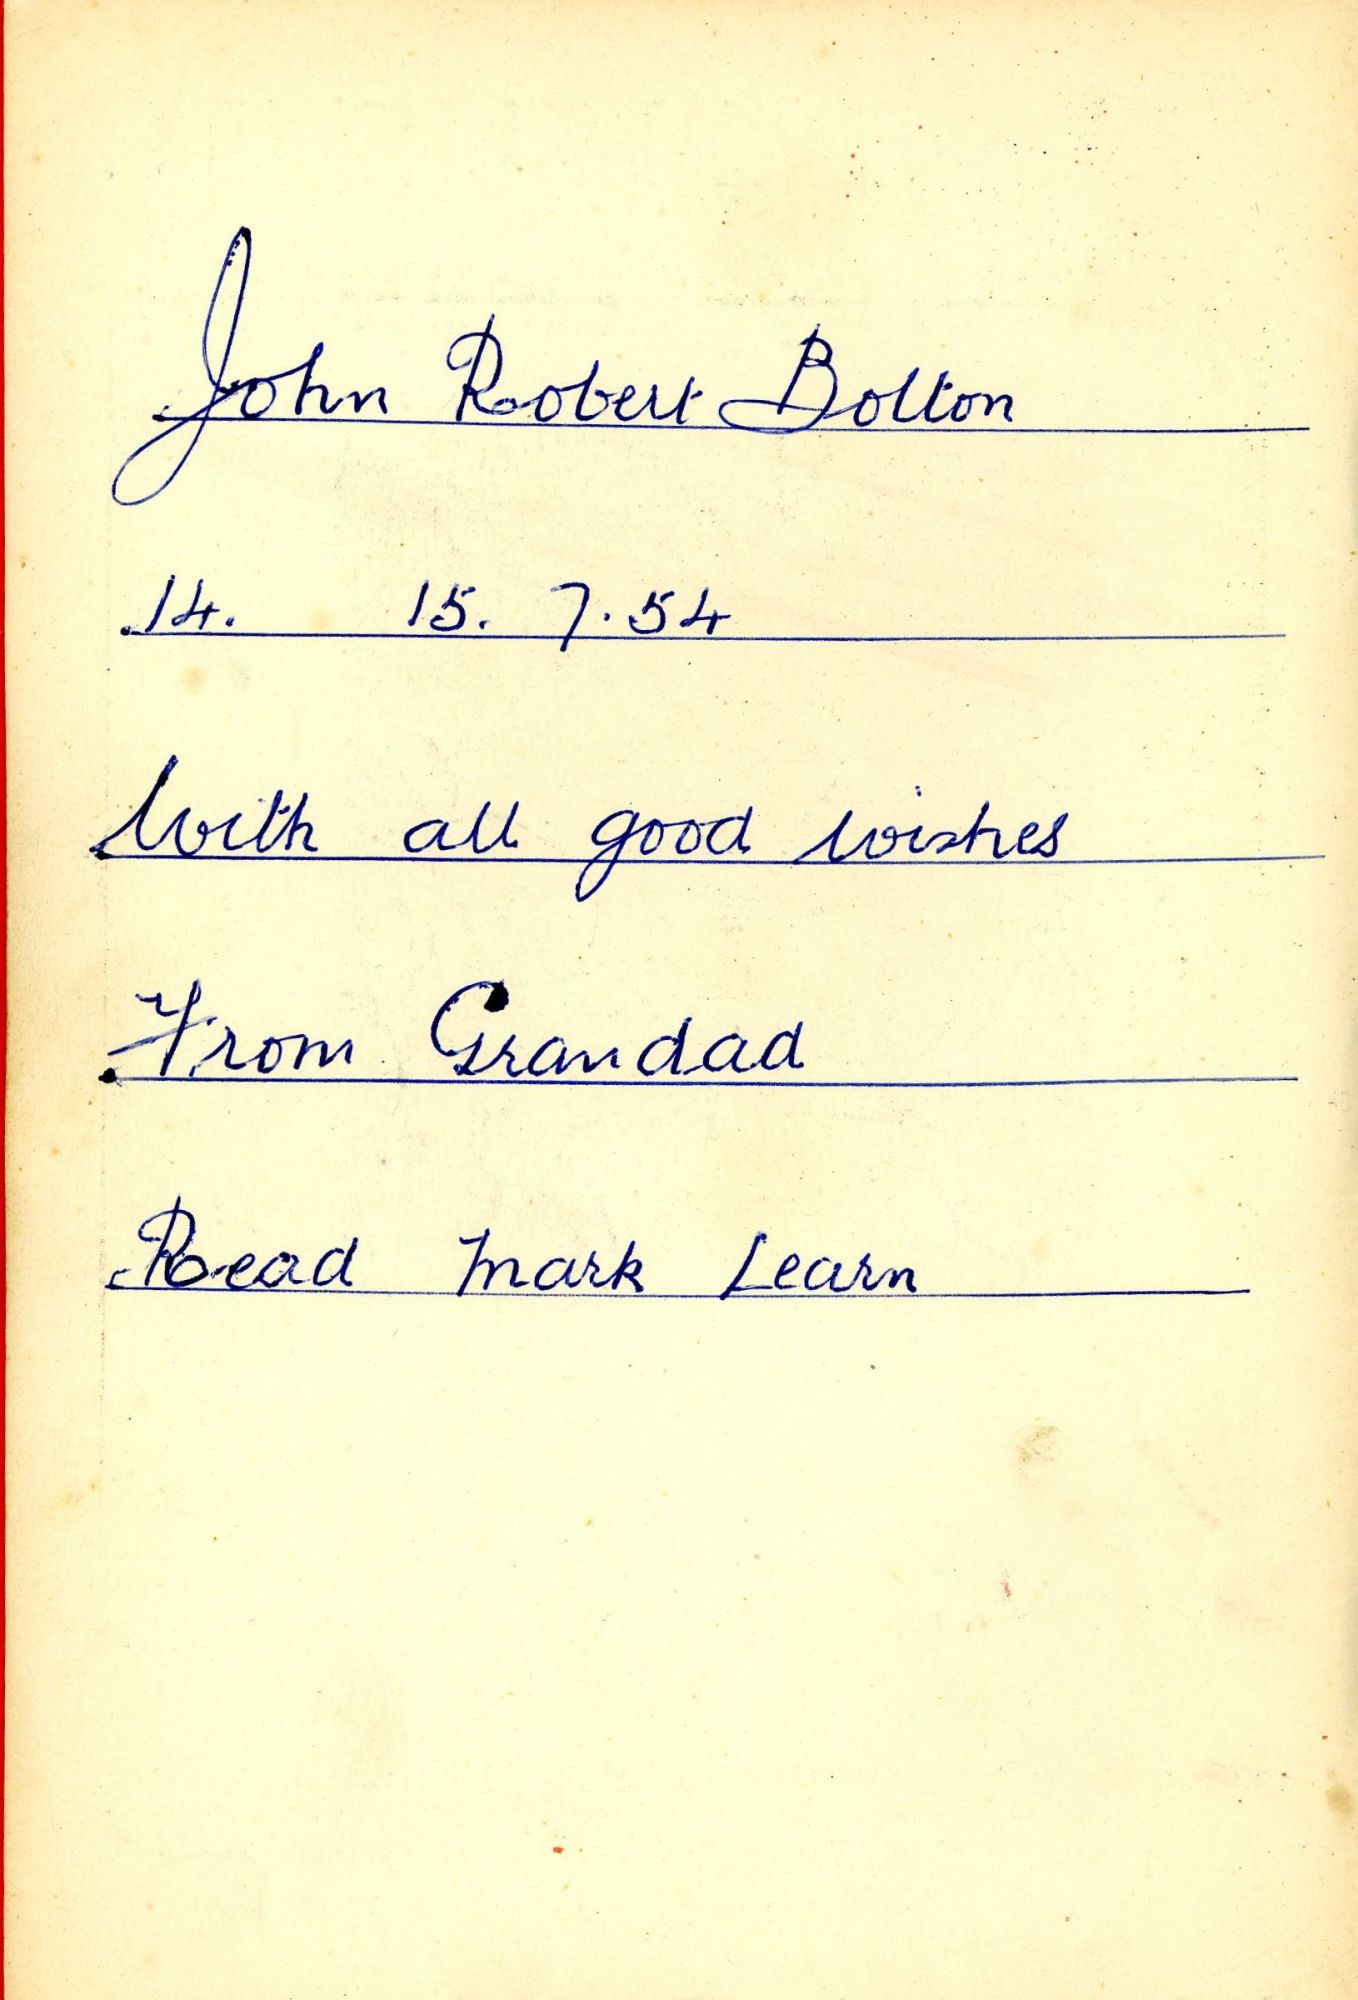 John Robert Bolton
14. 15. 7.54
With all good wishes
From Grandad
Read Mark Learn